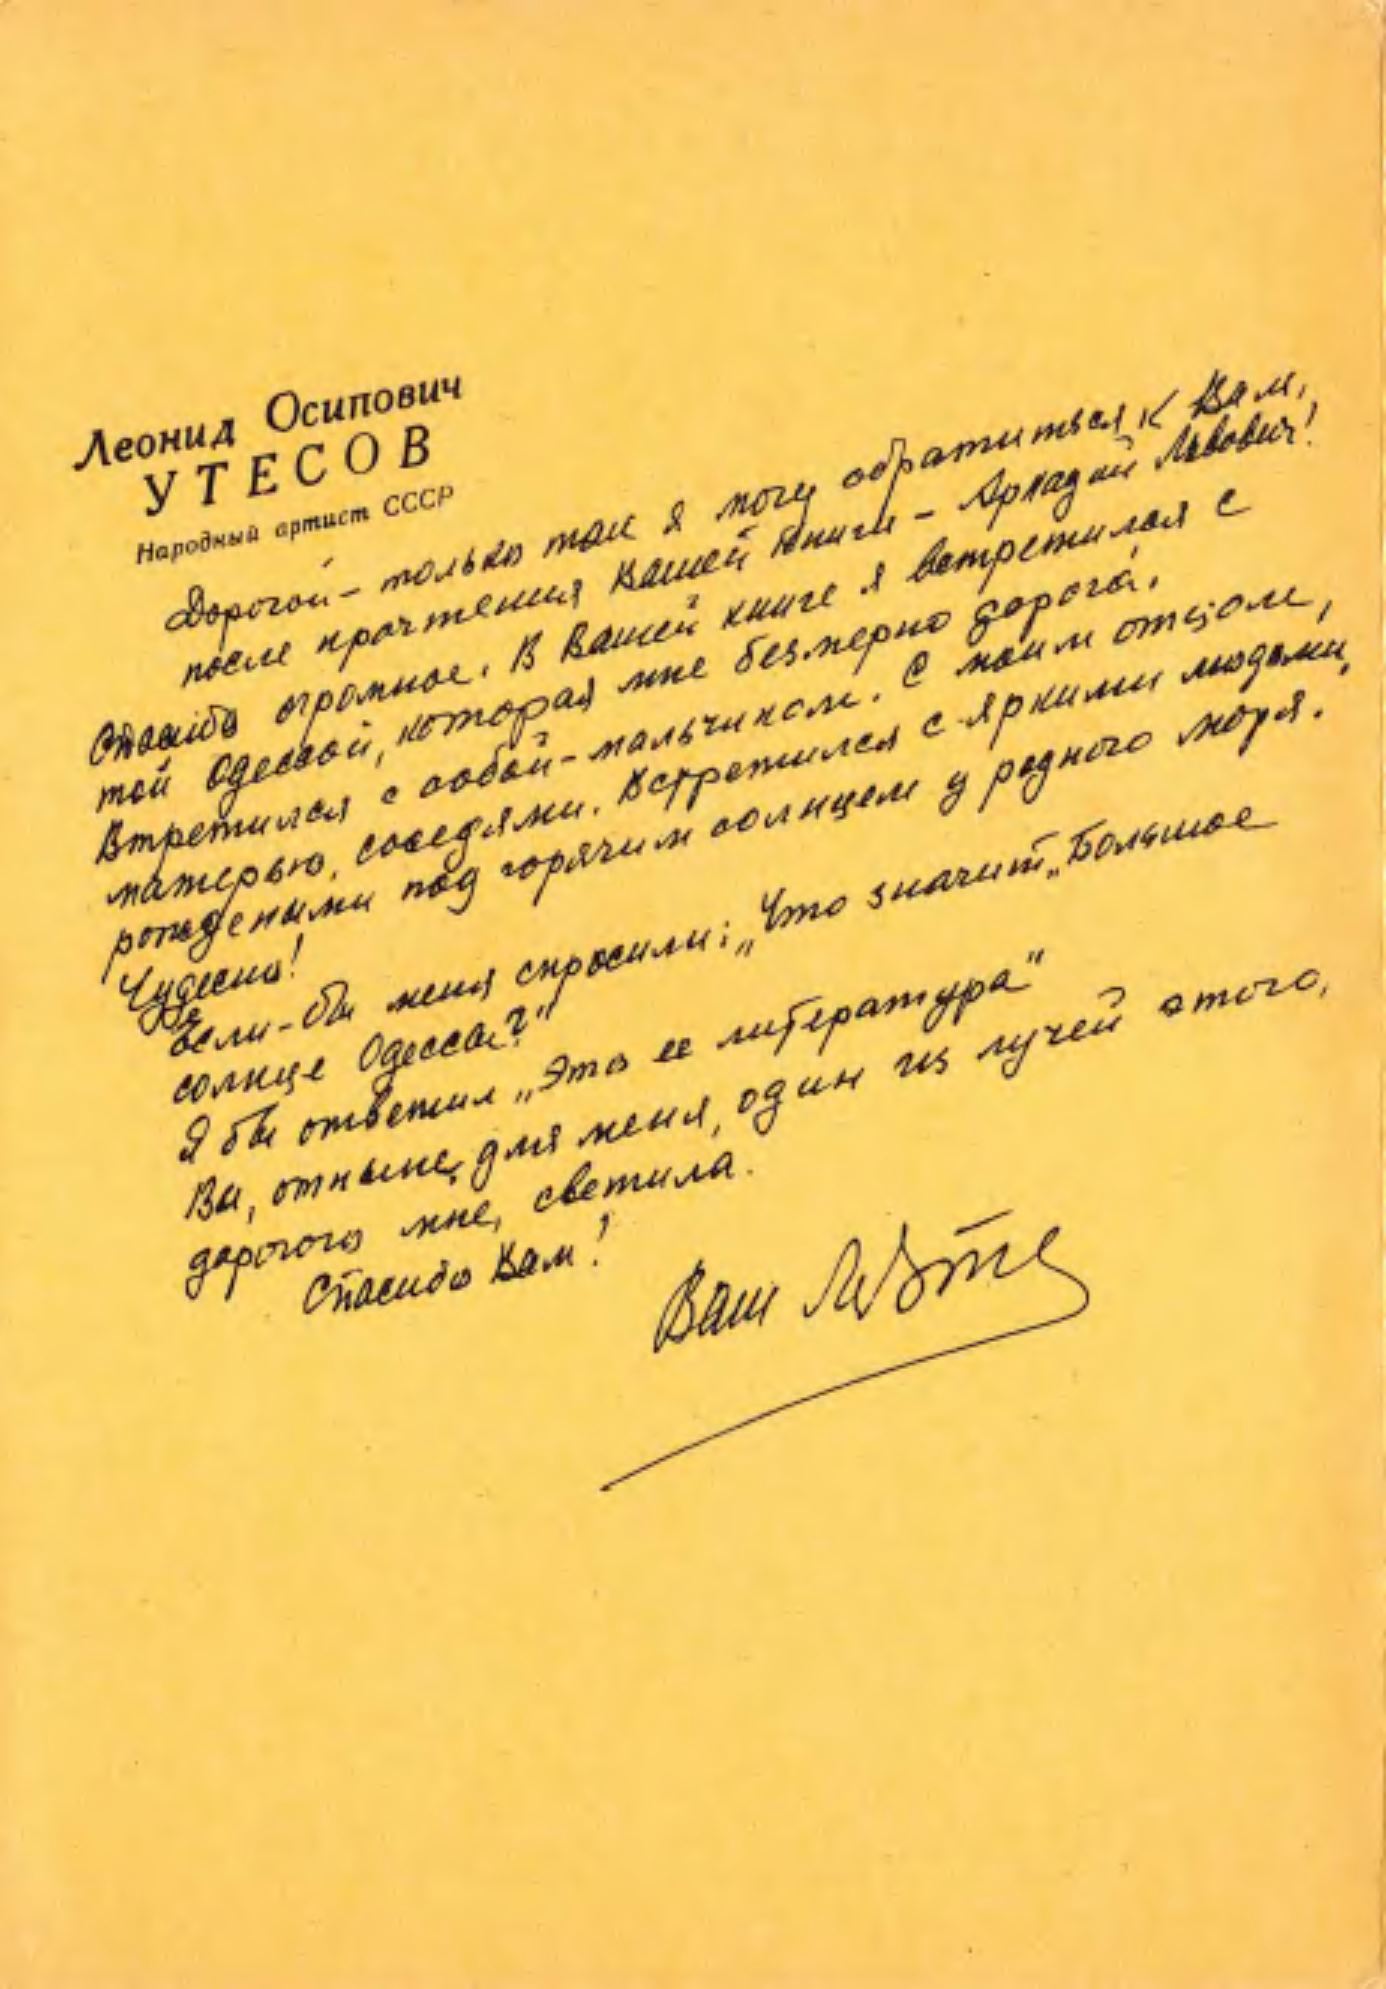 Леонид Осипович
УТЕСОВ
Народный артист СССР
Дорогой – только так я могу обратиться к Вам,
после прочтения Вашей книги – Аркадий Львович!
Спасибо огромное. В Вашей книге я встретился с
той Одессой, которая мне безмерно дорога.
Втретился с собой – мальчиком. С моим отцом,
матерью, соседями. Встретился с яркими людьми,
рожденими под горячим солнцем у родного моря.
Чудесно!
Если-бы меня спросили: „Что значит „Большое
солнце Одессы?"
Я бы ответил „Это ее литература"
Вы, отныне, для меня, один из лучей этого,
дорогого мне, светила.
Спасибо Вам!
Ваш